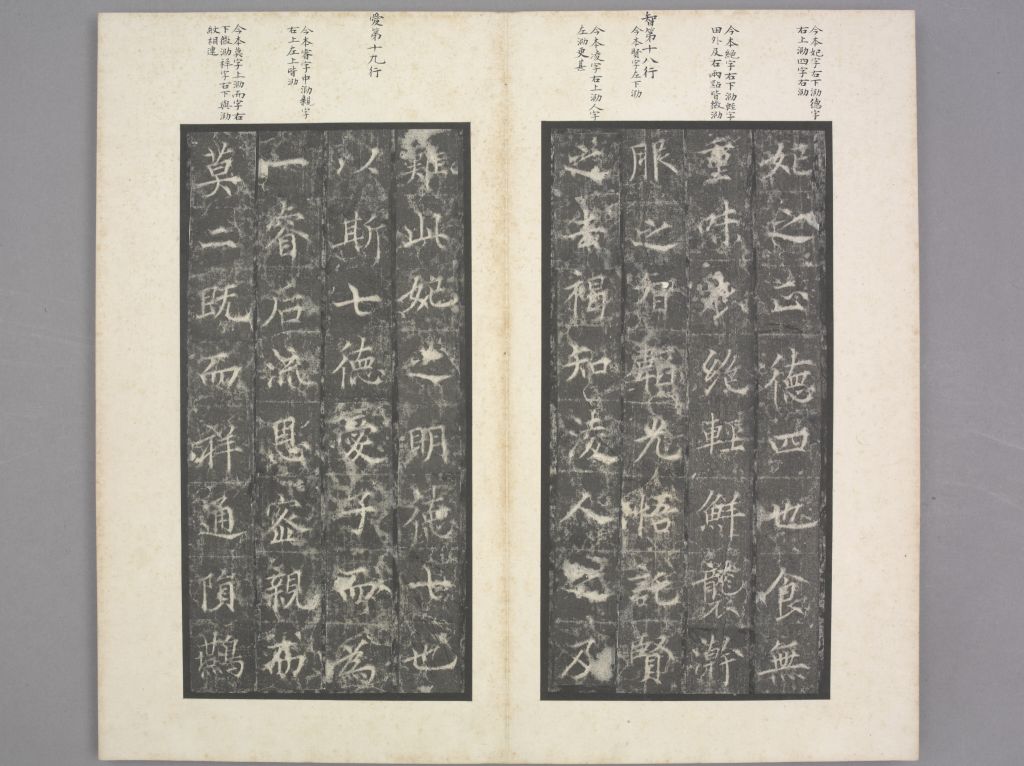 今本妃字右下泐德字
右上泐四字右泐
今本絕字右下泐輕字
田外及右兩點皆微泐
智第十八行
今本賢字左下泐
今本凌字右上泐人字
左泐更甚
妃之正德四也食無
重味衣絕輕鮮襲澣
服之智韜光悟託賢
之去褐知凌人之及
愛第十九行
今本睿字中泐親字
右上左上皆泐
今本莫字上泐而字右
下微泐祥字右下與泐
紋相連
難此妃之明德七也
以斯七德愛子而為
一睿后流恩密親而
莫二既而祥通隕鷰